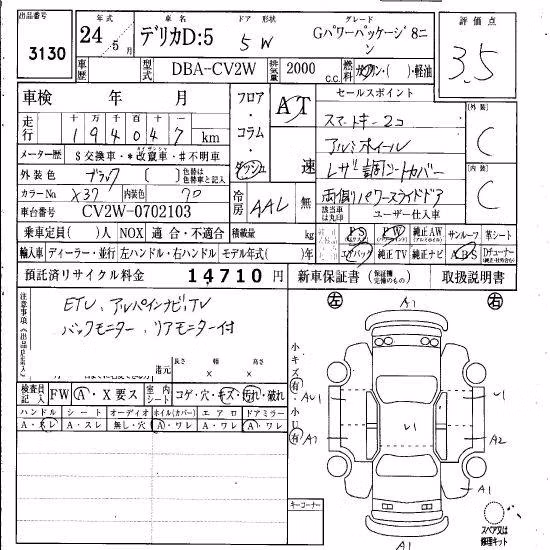 出品番号
3130
年式
24年5月
車名
デリカD:5
ドア 形状
5 W
グレード
Gパワーパッケージ8ニン
評価点
3.5
車歴
型式
DBA-CV2W
排気量
2000 c.c.
燃料
ガソリン・( )・軽油
車検 年 月
フロア・コラム・ダッシュ
AT
速
セールスポイント
スマートキー2コ
アルミホイール
レザー調シートカバー
両側パワースライドドア
[外装]
C
[内装]
C
走行
十万 千百十
194047 km
メーター歴
$交換車・*改竄車・#不明車
外装色
ブラック ( )
色替は色替車と記入
カラーNo
X37
内装色
70
冷房
AAC
無
該当車は丸印
ユーザー仕入車
車台番号
CV2W-0702103
乗車定員( )人
NOX 適合・不適合
積載量
kg
PS
PW
純正AW
サンルーフ
革シート
輸入車
ディーラー・並行
左ハンドル・右ハンドル
モデル年式( )年
エアバック
純正TV
純正ナビ
ABS
預託済リサイクル料金
14,710円
新車保証書
取扱説明書
注意事項(出品店記入)
ETC、アルパインナビ、TV
バックモニター、リアモニター付
諸元
長さ 幅 高さ
× ×
検査員記入
FW
A・X要ス
室内シート
コゲ・穴・キズ・汚れ・破れ
ハンドル
シート
オーディオ
ホイル(カバー)
エアロ
ドアミラー
A・スレ
A・スレ
無し・穴
A・ワレ
A・ワレ
A・ワレ
キーコーナー
左
右
小キズ有・小U有
A1
AU1
A1
U1
U1
A2
A1
A1
スペア又は修理キット